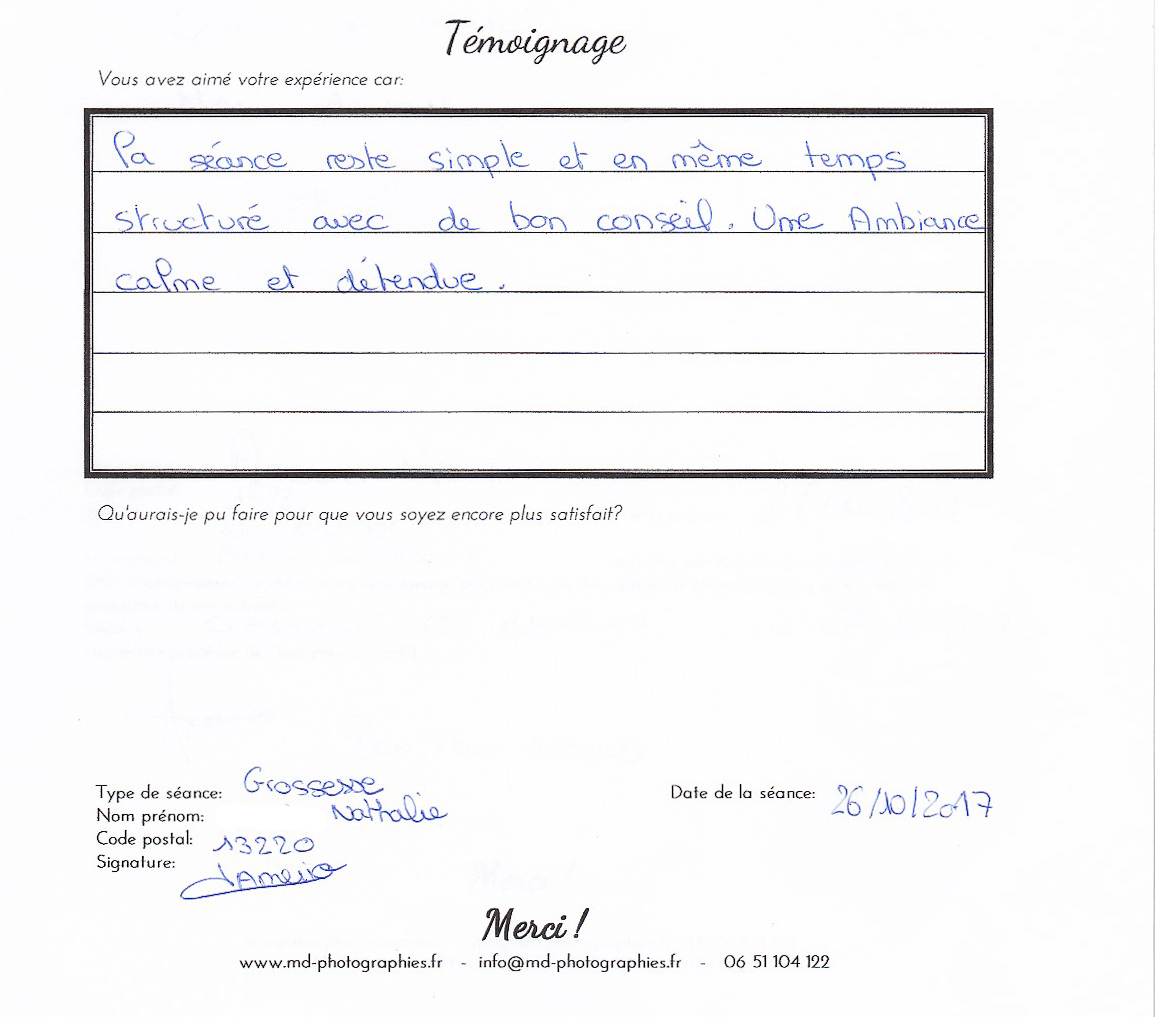 Témoignage
Vous avez aimé votre expérience car:
La séance reste simple et en même temps
structuré avec de bon conseil. Une Ambiance
calme et détendue.
Qu'aurais-je pu faire pour que vous soyez encore plus satisfait?
Type de séance: Grossesse
Date de la séance: 26/10/2017
Nom prénom: Nathalie
Code postal: 13220
Signature:
Merci !
www.md-photographies.fr - info@md-photographies.fr - 06 51 104 122